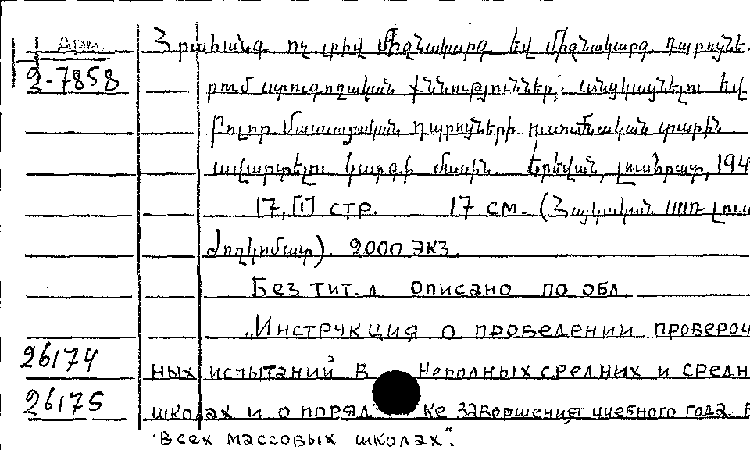 1 Арм. Հրահանգ ոչ լրիվ միջնակարգ եվ միջնակարգ դպրոցնե-
2-7858 րում ստուգողական քննություններ անցկացնելու եվ
բոլոր մասսայական դպրոցների ուսումնական տարին
ավարտելու կարգի մասին. Երևան, 194
17, [1] стр. 17 см. (Հայկական ՍՍՌ Լուս
ժողկոմատ). 2000 экз.
Без тит. л. Описано по обл
„Инструкция о проведении провероч
26174 ных испытаний в неполных средних и средн
26175 школах и о порядке завершения учебного года в
всех массовых школах".